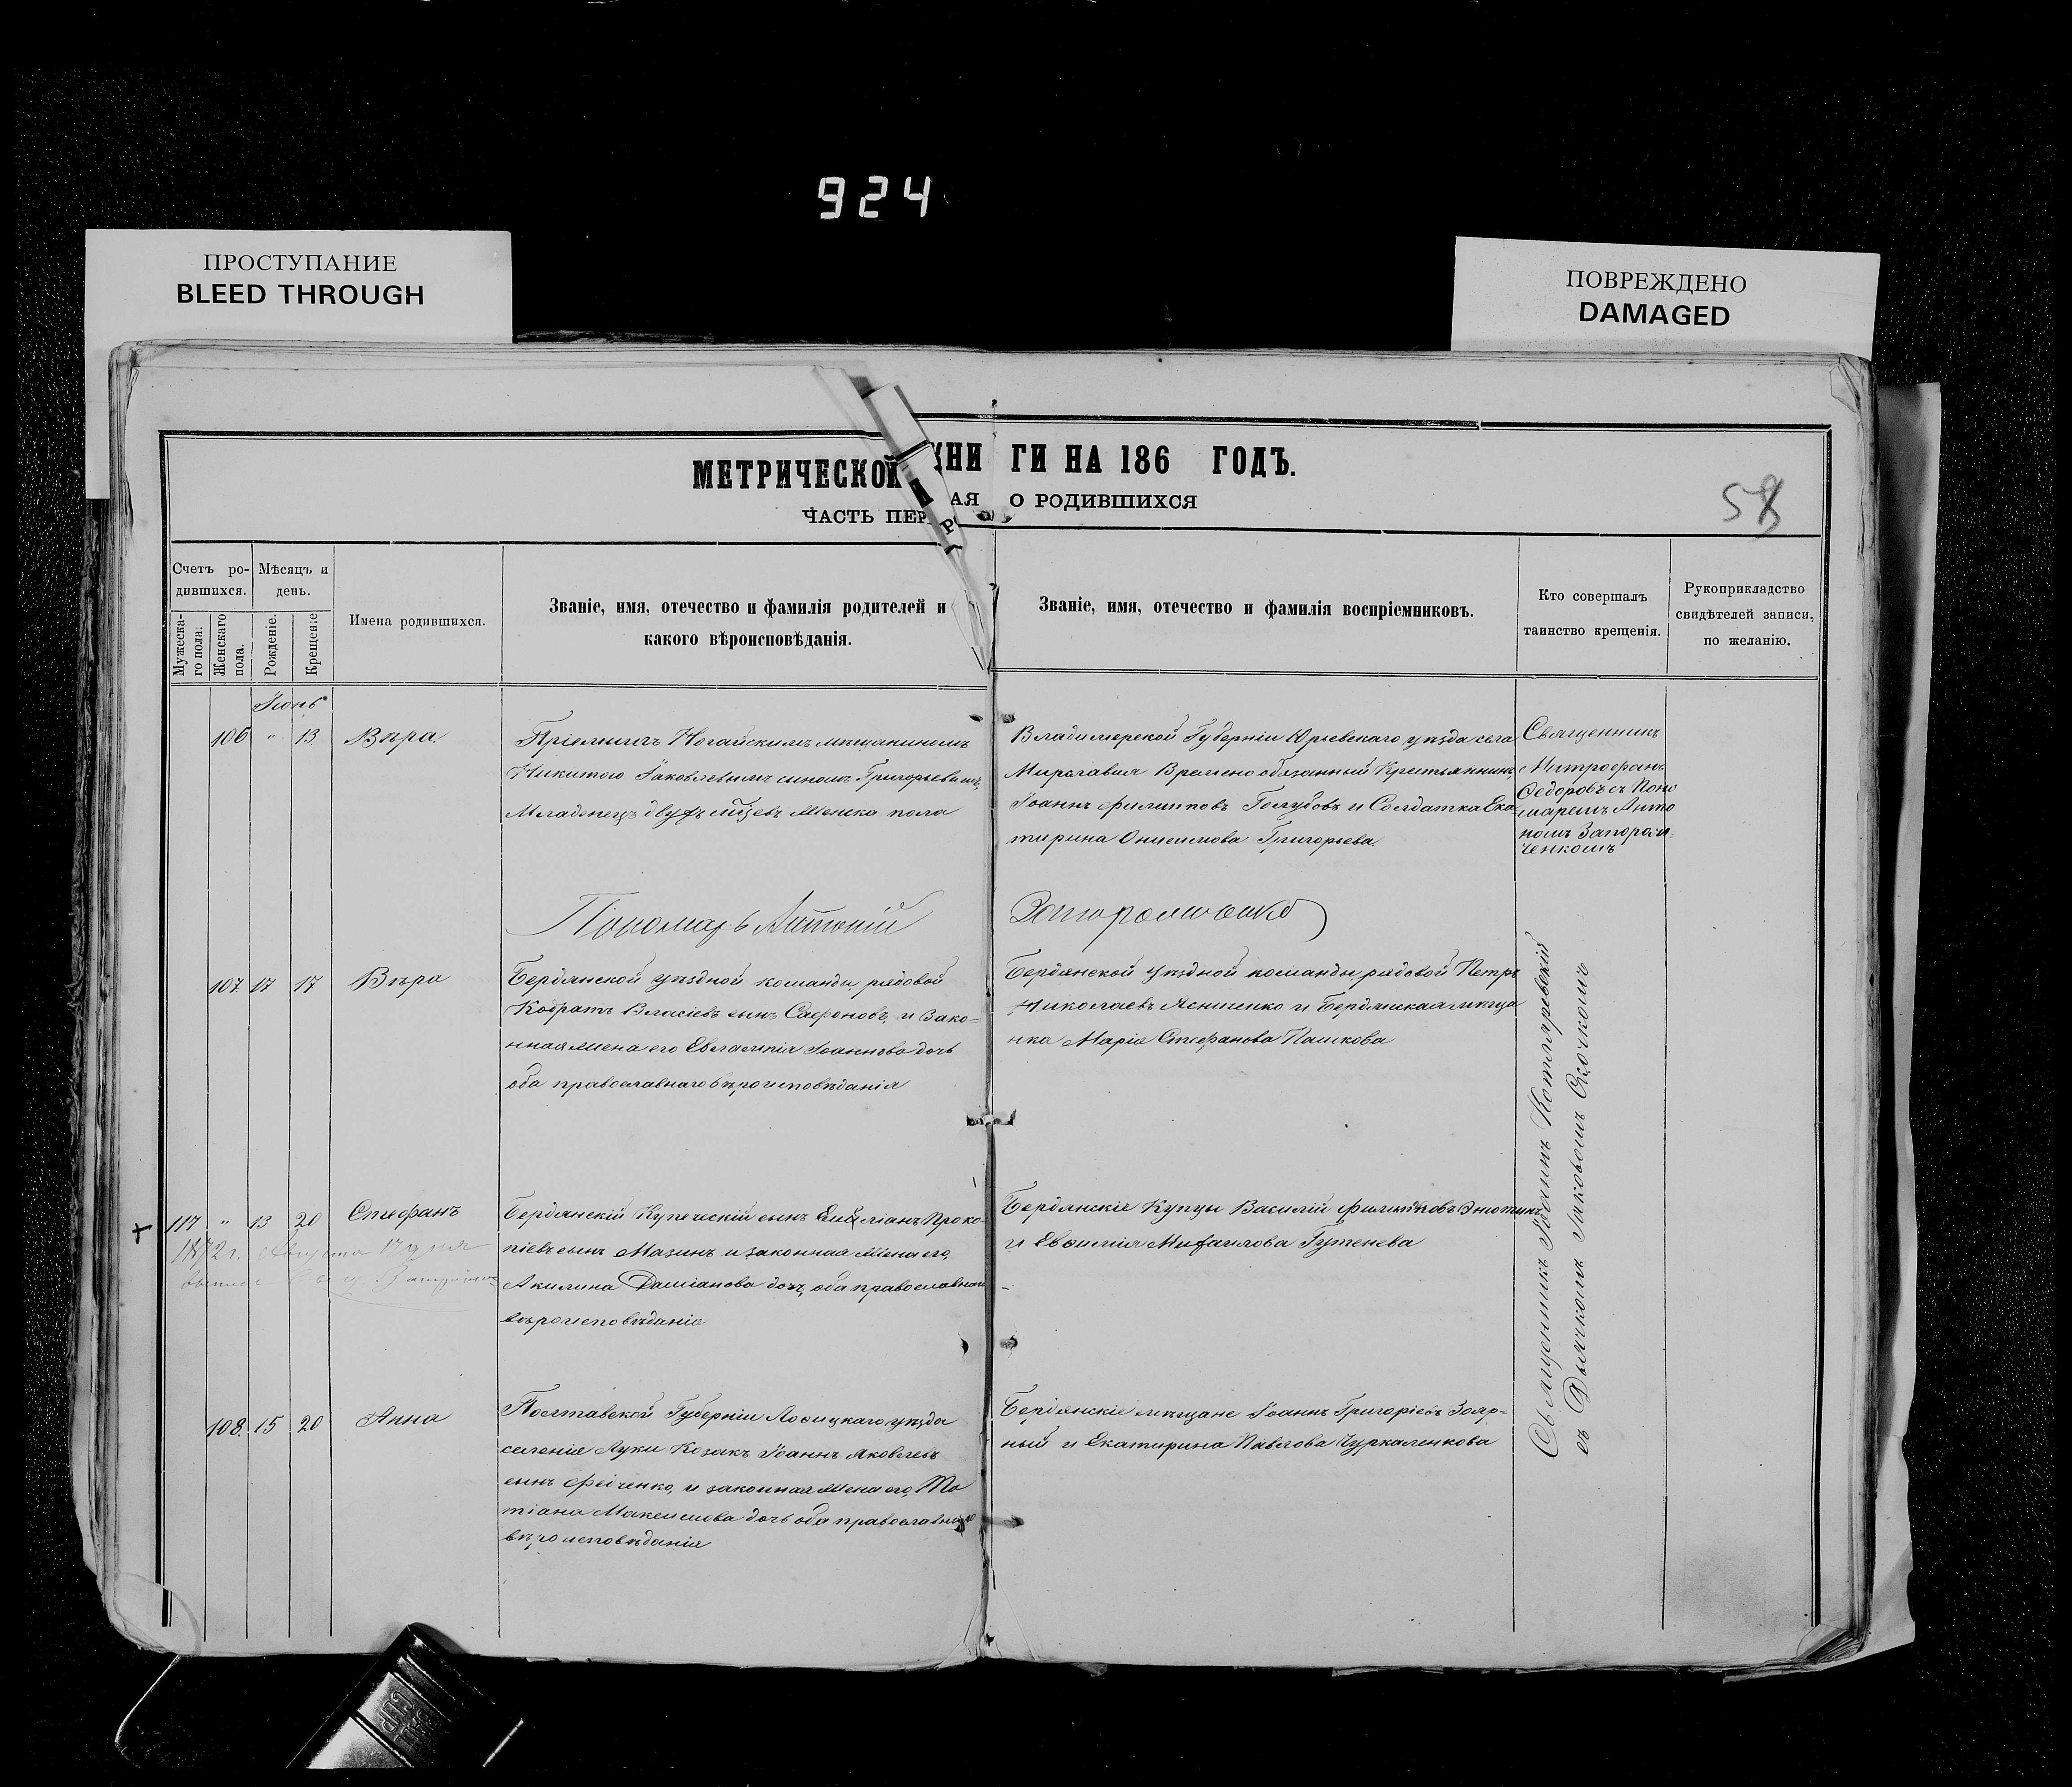 924
ПРОСТУПАНИЕ
BLEED THROUGH
ПОВРЕЖДЕНО
DAMAGED
МЕТРИЧЕСКОЙ КНИ ГИ НА 186 ГОДЪ.
ЧАСТЬ ПЕР АЯ О РОДИВШИХСЯ
58
Счетъ ро-
дившихся.
Мѣсяцъ и
день.
Мужеска-
го пола.
Женскаго
пола.
Рожденіе.
Крещеніе
Имена родившихся.
Званіе, имя, отечество и фамилія родителей и
какого вѣроисповѣданія.
Званіе, имя, отечество и фамилія воспріемниковъ.
Кто совершалъ
таинство крещенія.
Рукоприкладство
свидѣтелей записи,
по желанію.
Іюнь
106 " 13 Вѣра.
Пріемышъ Ногайскимъ мѣщаниномъ
Никитою Іаковлевымъ сыномъ Григорьевымъ,
Младенецъ двухъ мѣсцевъ женска пола
Владимерской Губерніи Юрьевскаго уѣзда села
Мирславля Времено обязанный Крестьянинъ,
Іоаннъ Филипповъ Голубовъ и Солдатка Ека
тирина Онисимова Григорьева.
Священникъ
Митрофанъ
Федоровъ съ Поно
маремъ Анто
номъ
ченкомъ
Пономарь Антоній
107 17 17 Вѣра
Бердянской уѣздной команды рядовой
Кодратъ Власіевъ сынъ Сафоновъ, и Зако=
нная жена его Евлампія Іоаннова дочь
оба православнаго вѣроисповѣданія
Бердянской уѣздной команды рядовой Петръ
Николаевъ Ясниченко и Бердянская мѣща
нка Марія Стефанова Пашкова
Священникъ Іоаннъ Котляревскій
съ Дьячкомъ Іаковомъ Скочкомъ
117 " 13 20 Стефанъ
1872 г. Августа
Бердянскій Купеческій сынъ Емиліанъ Проко
піевъ сынъ Мазинъ и законная жена его,
Акилина Даміанова дочь, оба православнаго
вѣроисповѣданія
Бердянскіе Купцы Василій Филиповъ
и Евфимія Михаилова Гутенева
108. 15 20 Анна
Полтавской Губерніи Лохицкаго уѣзда
селенія Луки Козакъ Іоаннъ Яковлевъ
сынъ Фейченко, и законная жена его, Та
тіана Максимова дочь оба православнаго
вѣроисповѣданія
Бердянскіе мѣщане Іоаннъ Григоріевъ Зояр=
ный и Екатирина Павлова Чуркаленкова